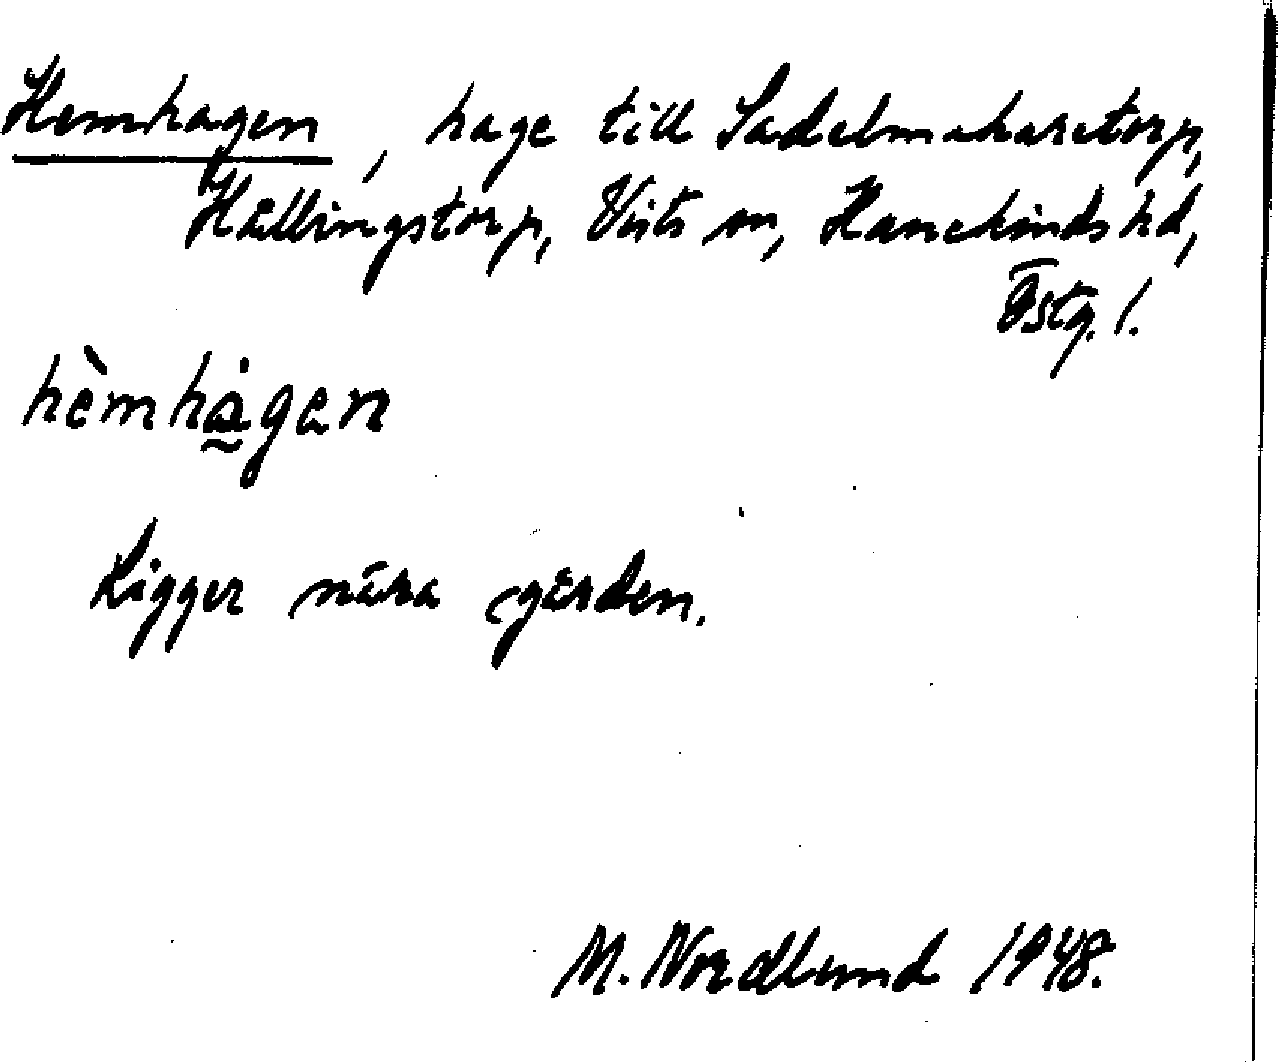 Hemhagen, hage till Sadelmakaretorp,
Hällingstorp, Vists sn, Hanekinds hd,
Östg. l.
hèmhågen
Ligger nära gården.
M. Nordlund 1948.